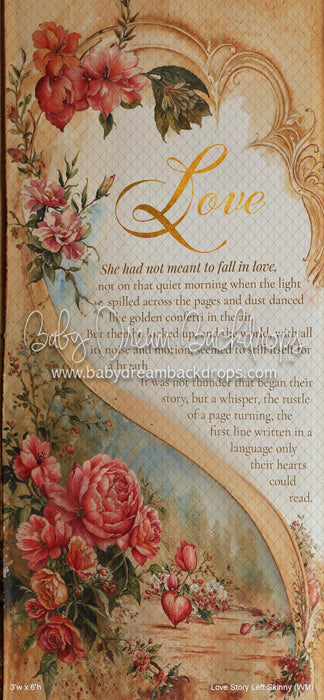 Love
She had not meant to fall in love,
not on that quiet morning when the light
spilled across the pages and dust danced
like golden confetti in the air.
But then he looked up, and the world, with all
its noise and motion, seemed to still itself for
a breath.
It was not thunder that began their
story, but a whisper, the rustle
of a page turning, the
first line written in a
language only
their hearts
could
read.
Baby Dream Backdrops
www.babydreambackdrops.com
3'w x 6'h
Love Story Left Skinny (WM)